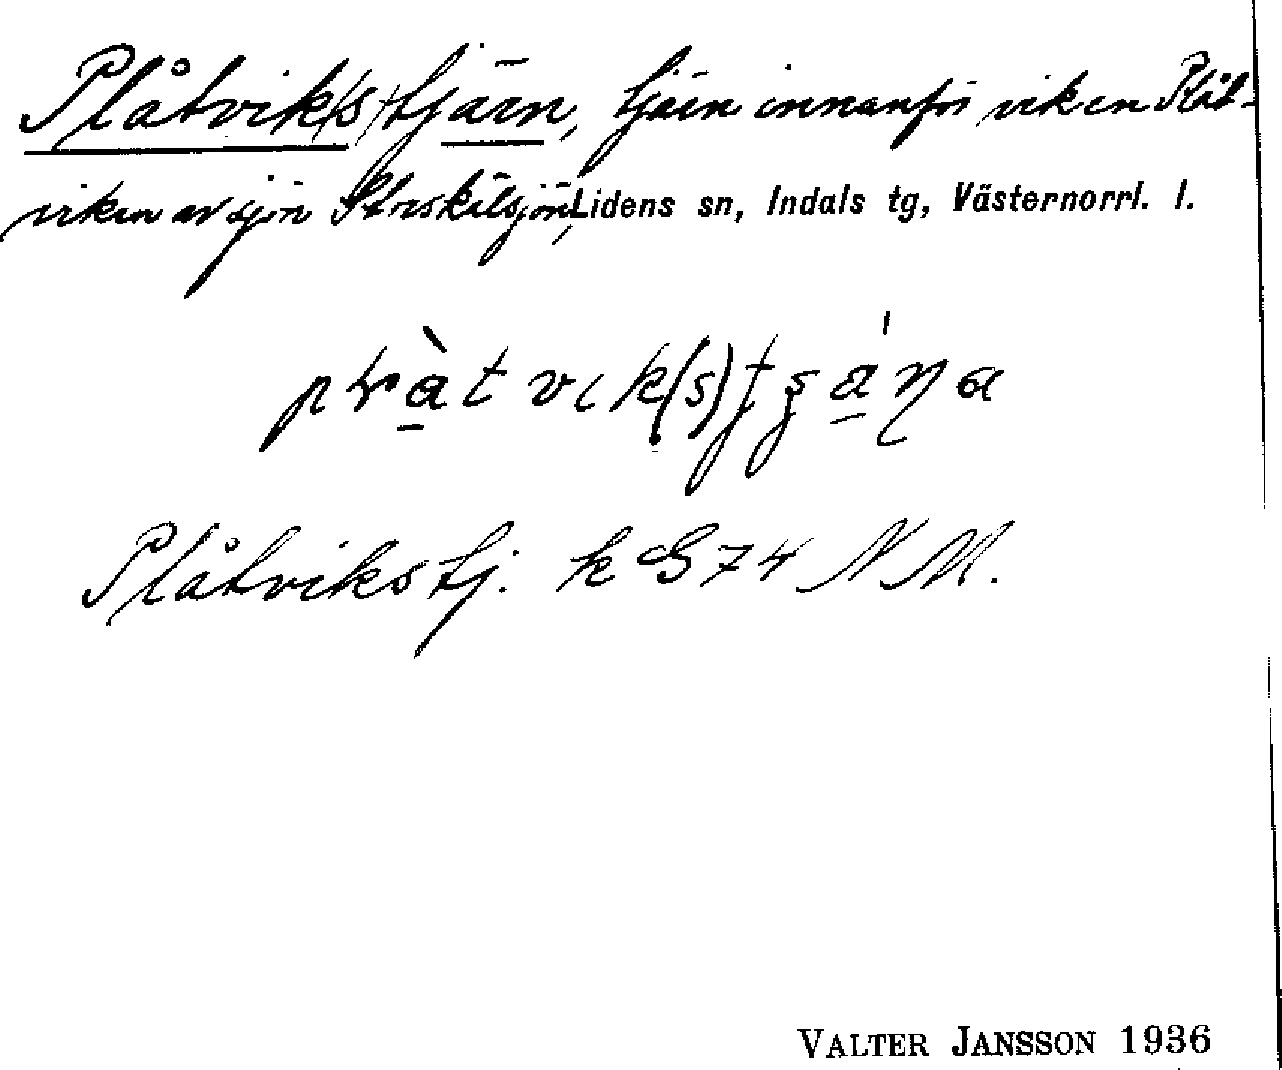 Plåtvik(s)tjärn, tjärn innanför viken Plåt-
viken av sjön Storskälsjön, Lidens sn, Indals tg, Västernorrl. l.
Plåtvikstj. k G74 NM.
VALTER JANSSON 1936